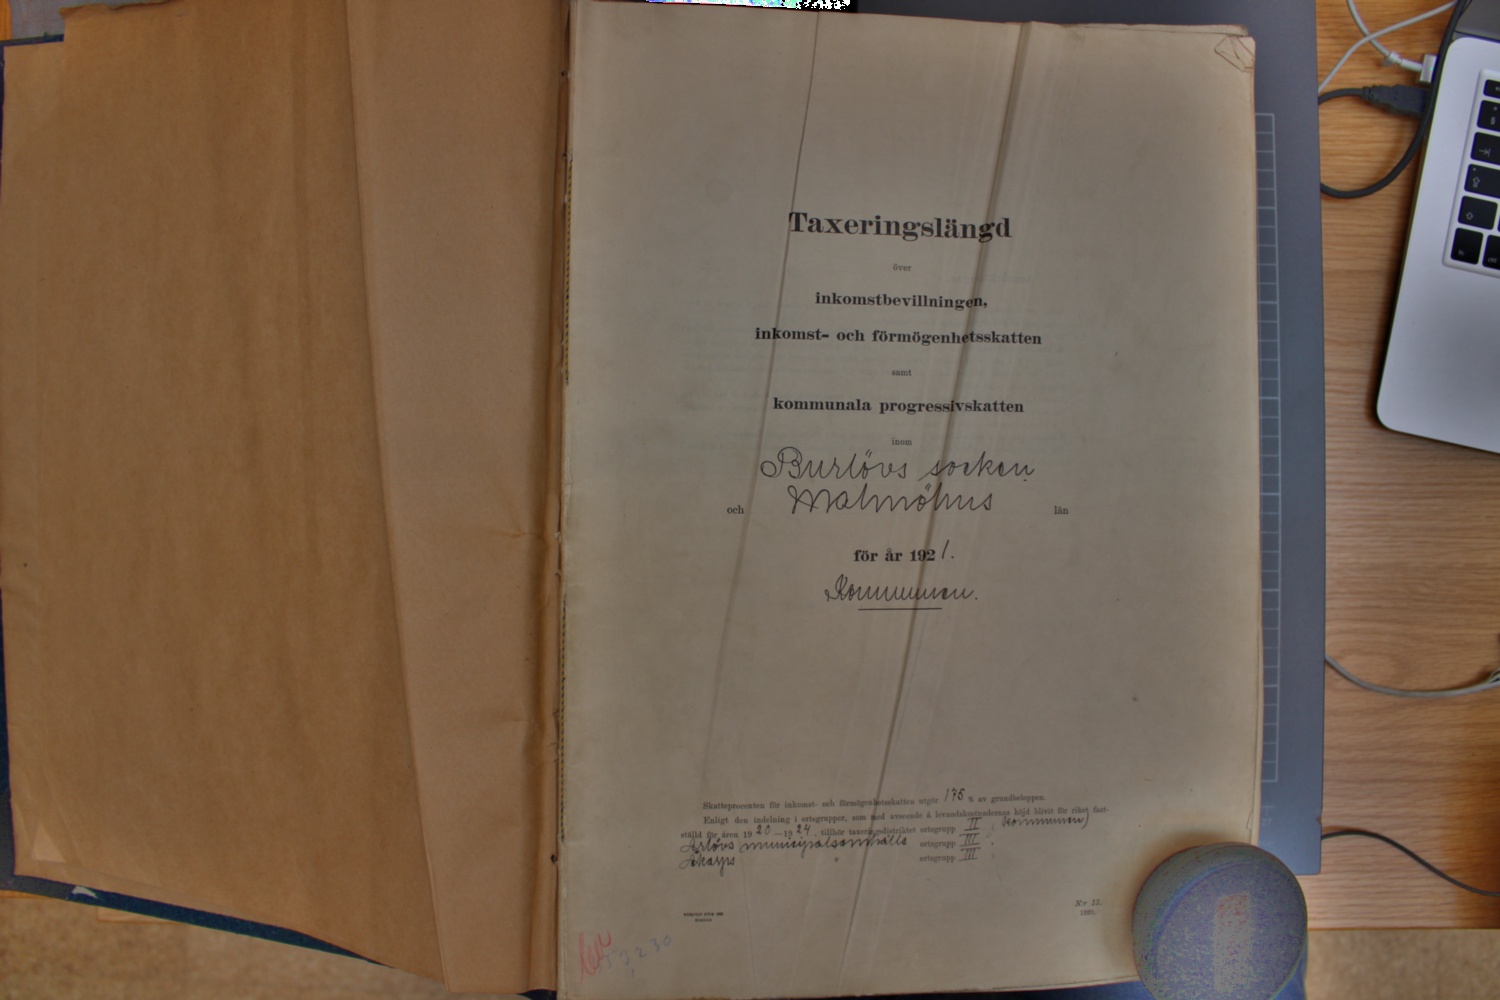 Taxeringslängd
över
inkomstbevillningen,
inkomst- och förmögenhetsskatten
samt
kommunala progressivskatten
inom
Burlövs socken
och Malmöhus län
för år 1921.
Kommunen.
Skatteprocenten för inkomst- och förmögenhetsskatten utgör 175 % av grundbeloppen.
Enligt den indelning i ortsgrupper, som med avseende å levnadskostnadernas höjd blivit för riket fast-
ställd för åren 1920—1924, tillhör taxeringsdistriktet ortsgrupp II (kommunen)
Arlövs municipalsamhälle ortsgrupp III
Åkarps " ortsgrupp III
N:r 15.